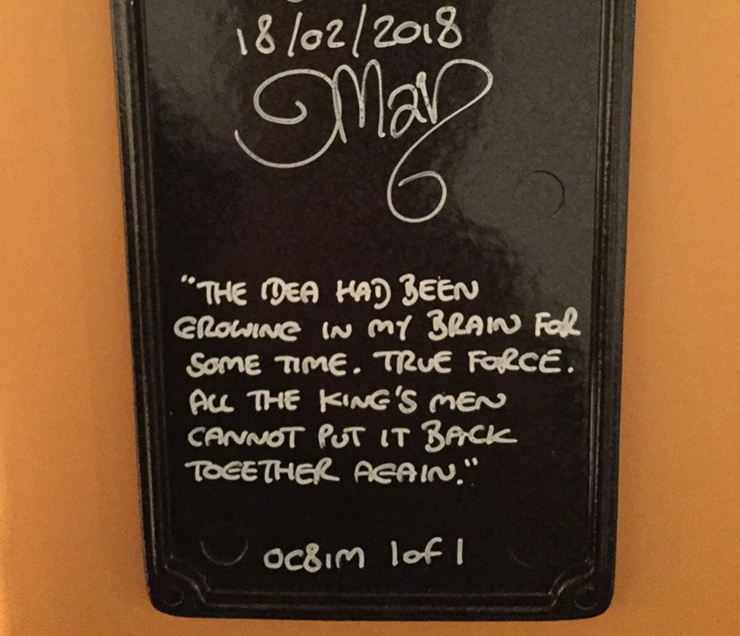 18/02/2018
May
"THE IDEA HAD BEEN
GROWING IN MY BRAIN FOR
SOME TIME. TRUE FORCE.
ALL THE KING'S MEN
CANNOT PUT IT BACK
TOGETHER AGAIN."
OC81M 1 of 1